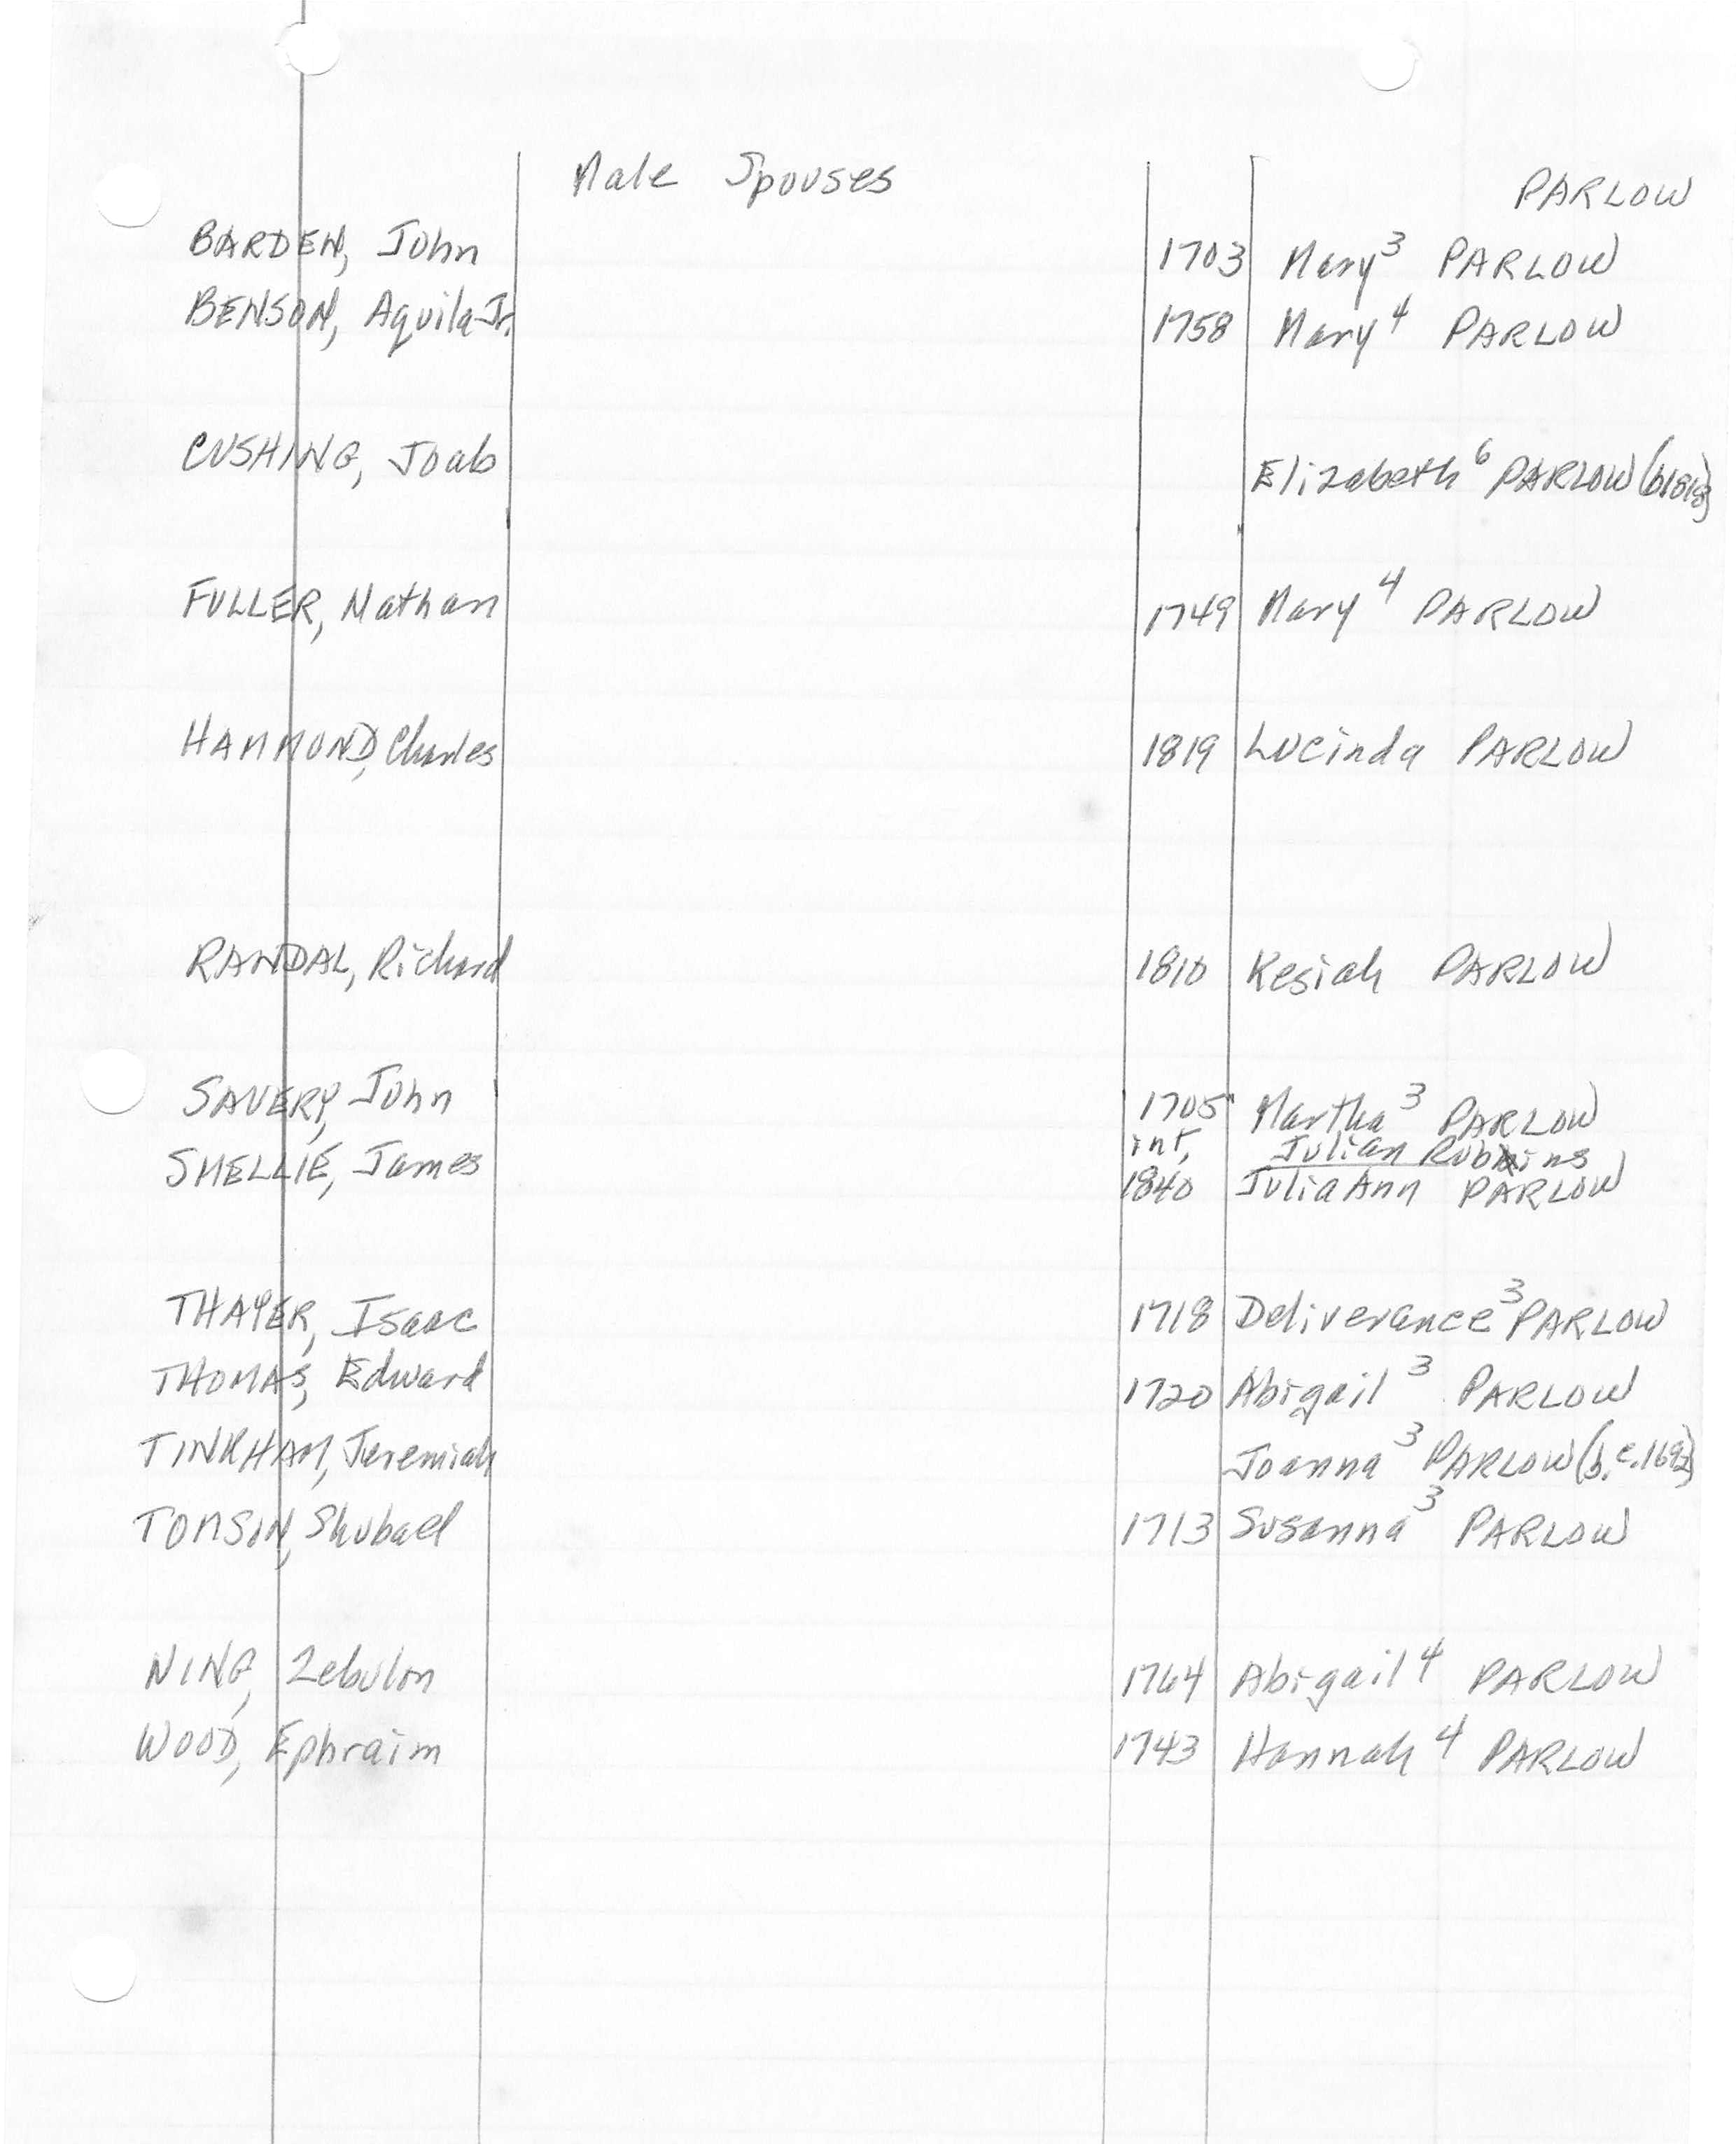 Male Spouses PARLOW
BARDEN, John 1703 Mary³ PARLOW
BENSON, Aquila Jr. 1758 Mary⁴ PARLOW
CUSHING, Joab Elizabeth⁶ PARLOW (b1818)
FULLER, Nathan 1749 Mary⁴ PARLOW
HAMMOND, Charles 1819 Lucinda PARLOW
RANDAL, Richard 1810 Kesiah PARLOW
SAVERY, John 1705 Martha³ PARLOW
int, Julian Robbins
SMELLIE, James 1840 Julia Ann PARLOW
THAYER, Isaac 1718 Deliverance³ PARLOW
THOMAS, Edward 1720 Abigail³ PARLOW
TINKHAM, Jeremiah Joanna³ PARLOW (b.c.1692)
TOMSON, Shubael 1713 Susanna³ PARLOW
NING, Zebulon 1764 Abigail⁴ PARLOW
WOOD, Ephraim 1743 Hannah⁴ PARLOW